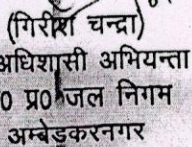 (गिरीश चन्द्रा)
अधिशासी अभियन्ता
0 प्र0 जल निगम
अम्बेडकरनगर